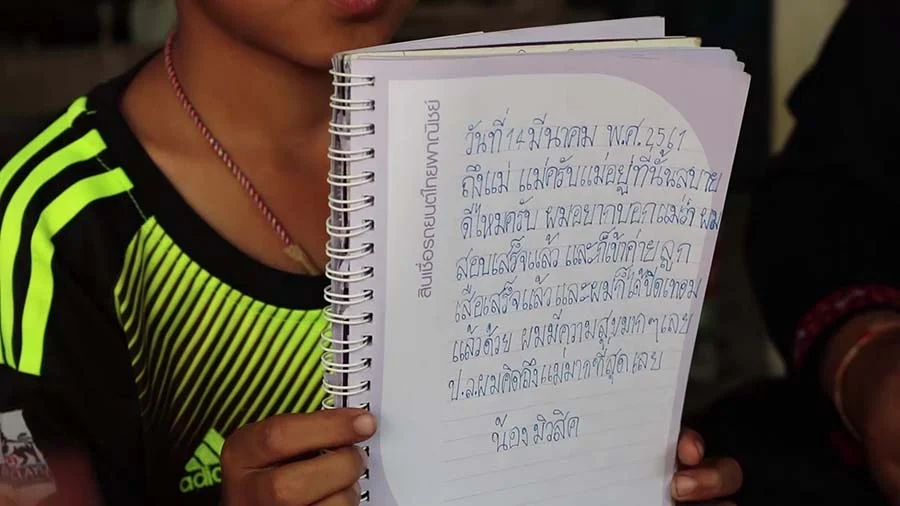 สินเชื่อรถยนต์ไทยพาณิชย์
วันที่ 14 มีนาคม พ.ศ. 2561
ถึงแม่ แม่ครับแม่อยู่ที่นั้นสบาย
ดีไหมครับ ผมอยากบอกแม่ว่า ผม
สอบเสร็จแล้ว และก็เข้าค่าย ลูก
เสือเสร็จแล้ว และผมก็ได้ปิดเทอม
แล้วด้วย ผมมีความสุขมากๆเลย
ป.ล.ผมคิดถึงแม่มากที่สุดเลย
น้องมิวสิค
adidas